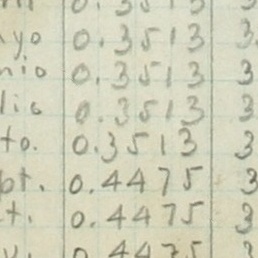 0.3513
yo 0.3513 3.
nio 0.3513 3
lio 0.3513 3
to. 0.3513 3
pt. 0.4475 3
t. 0.4475 3
0.4475 3